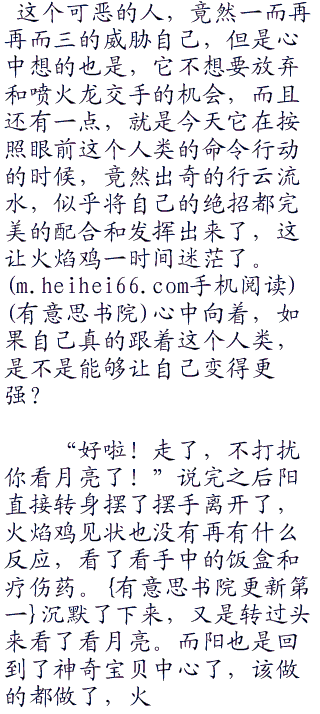 这个可恶的人，竟然一而再
再而三的威胁自己，但是心
中想的也是，它不想要放弃
和喷火龙交手的机会，而且
还有一点，就是今天它在按
照眼前这个人类的命令行动
的时候，竟然出奇的行云流
水，似乎将自己的绝招都完
美的配合和发挥出来了，这
让火焰鸡一时间迷茫了。
(m.heihei66.com手机阅读)
(有意思书院)心中向着，如
果自己真的跟着这个人类，
是不是能够让自己变得更
强？
“好啦！走了，不打扰
你看月亮了！”说完之后阳
直接转身摆了摆手离开了，
火焰鸡见状也没有再有什么
反应，看了看手中的饭盒和
疗伤药。{有意思书院更新第
一}沉默了下来，又是转过头
来看了看月亮。而阳也是回
到了神奇宝贝中心了，该做
的都做了，火